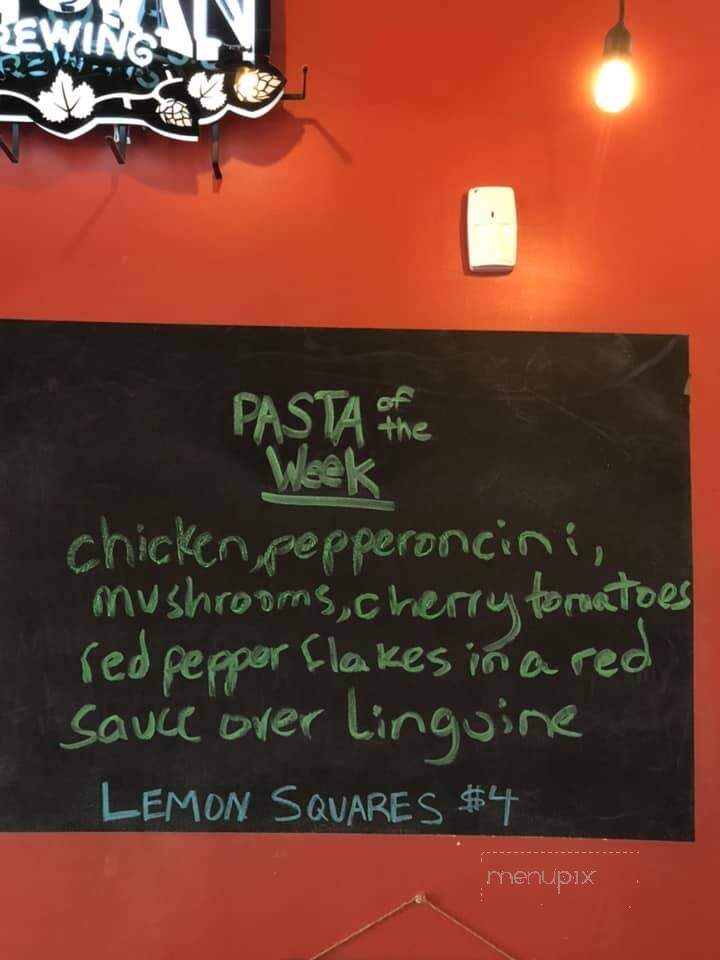 REWING
PASTA of the
Week
chicken, pepperoncini,
mushrooms, cherry tomatoes
red pepper flakes in a red
sauce over Linguine
LEMON SQUARES $4
menupix